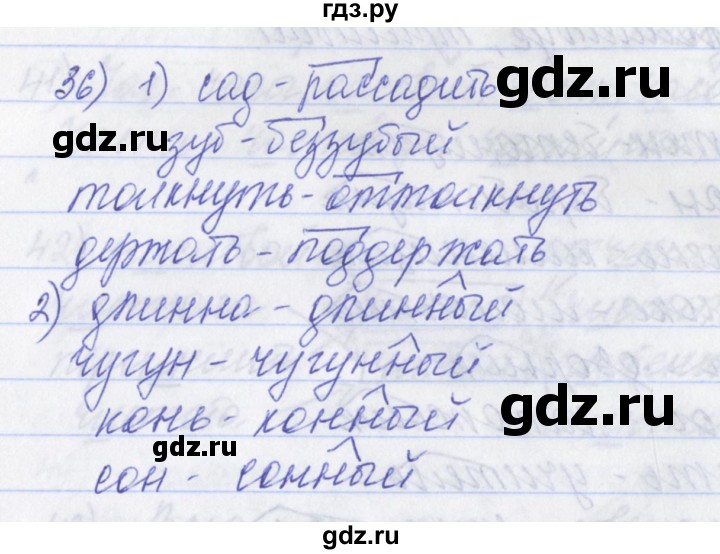 гдз.ру
36) 1) сад - рассадить
gdz.ru
gdz.ru
зуб - беззубый
толкнуть - оттолкнуть
держать - поддержать
2) длинна - длинный
чугун - чугунный
gdz.ru
конь - конный
gdz.ru
сон - сонный
gdz.ru